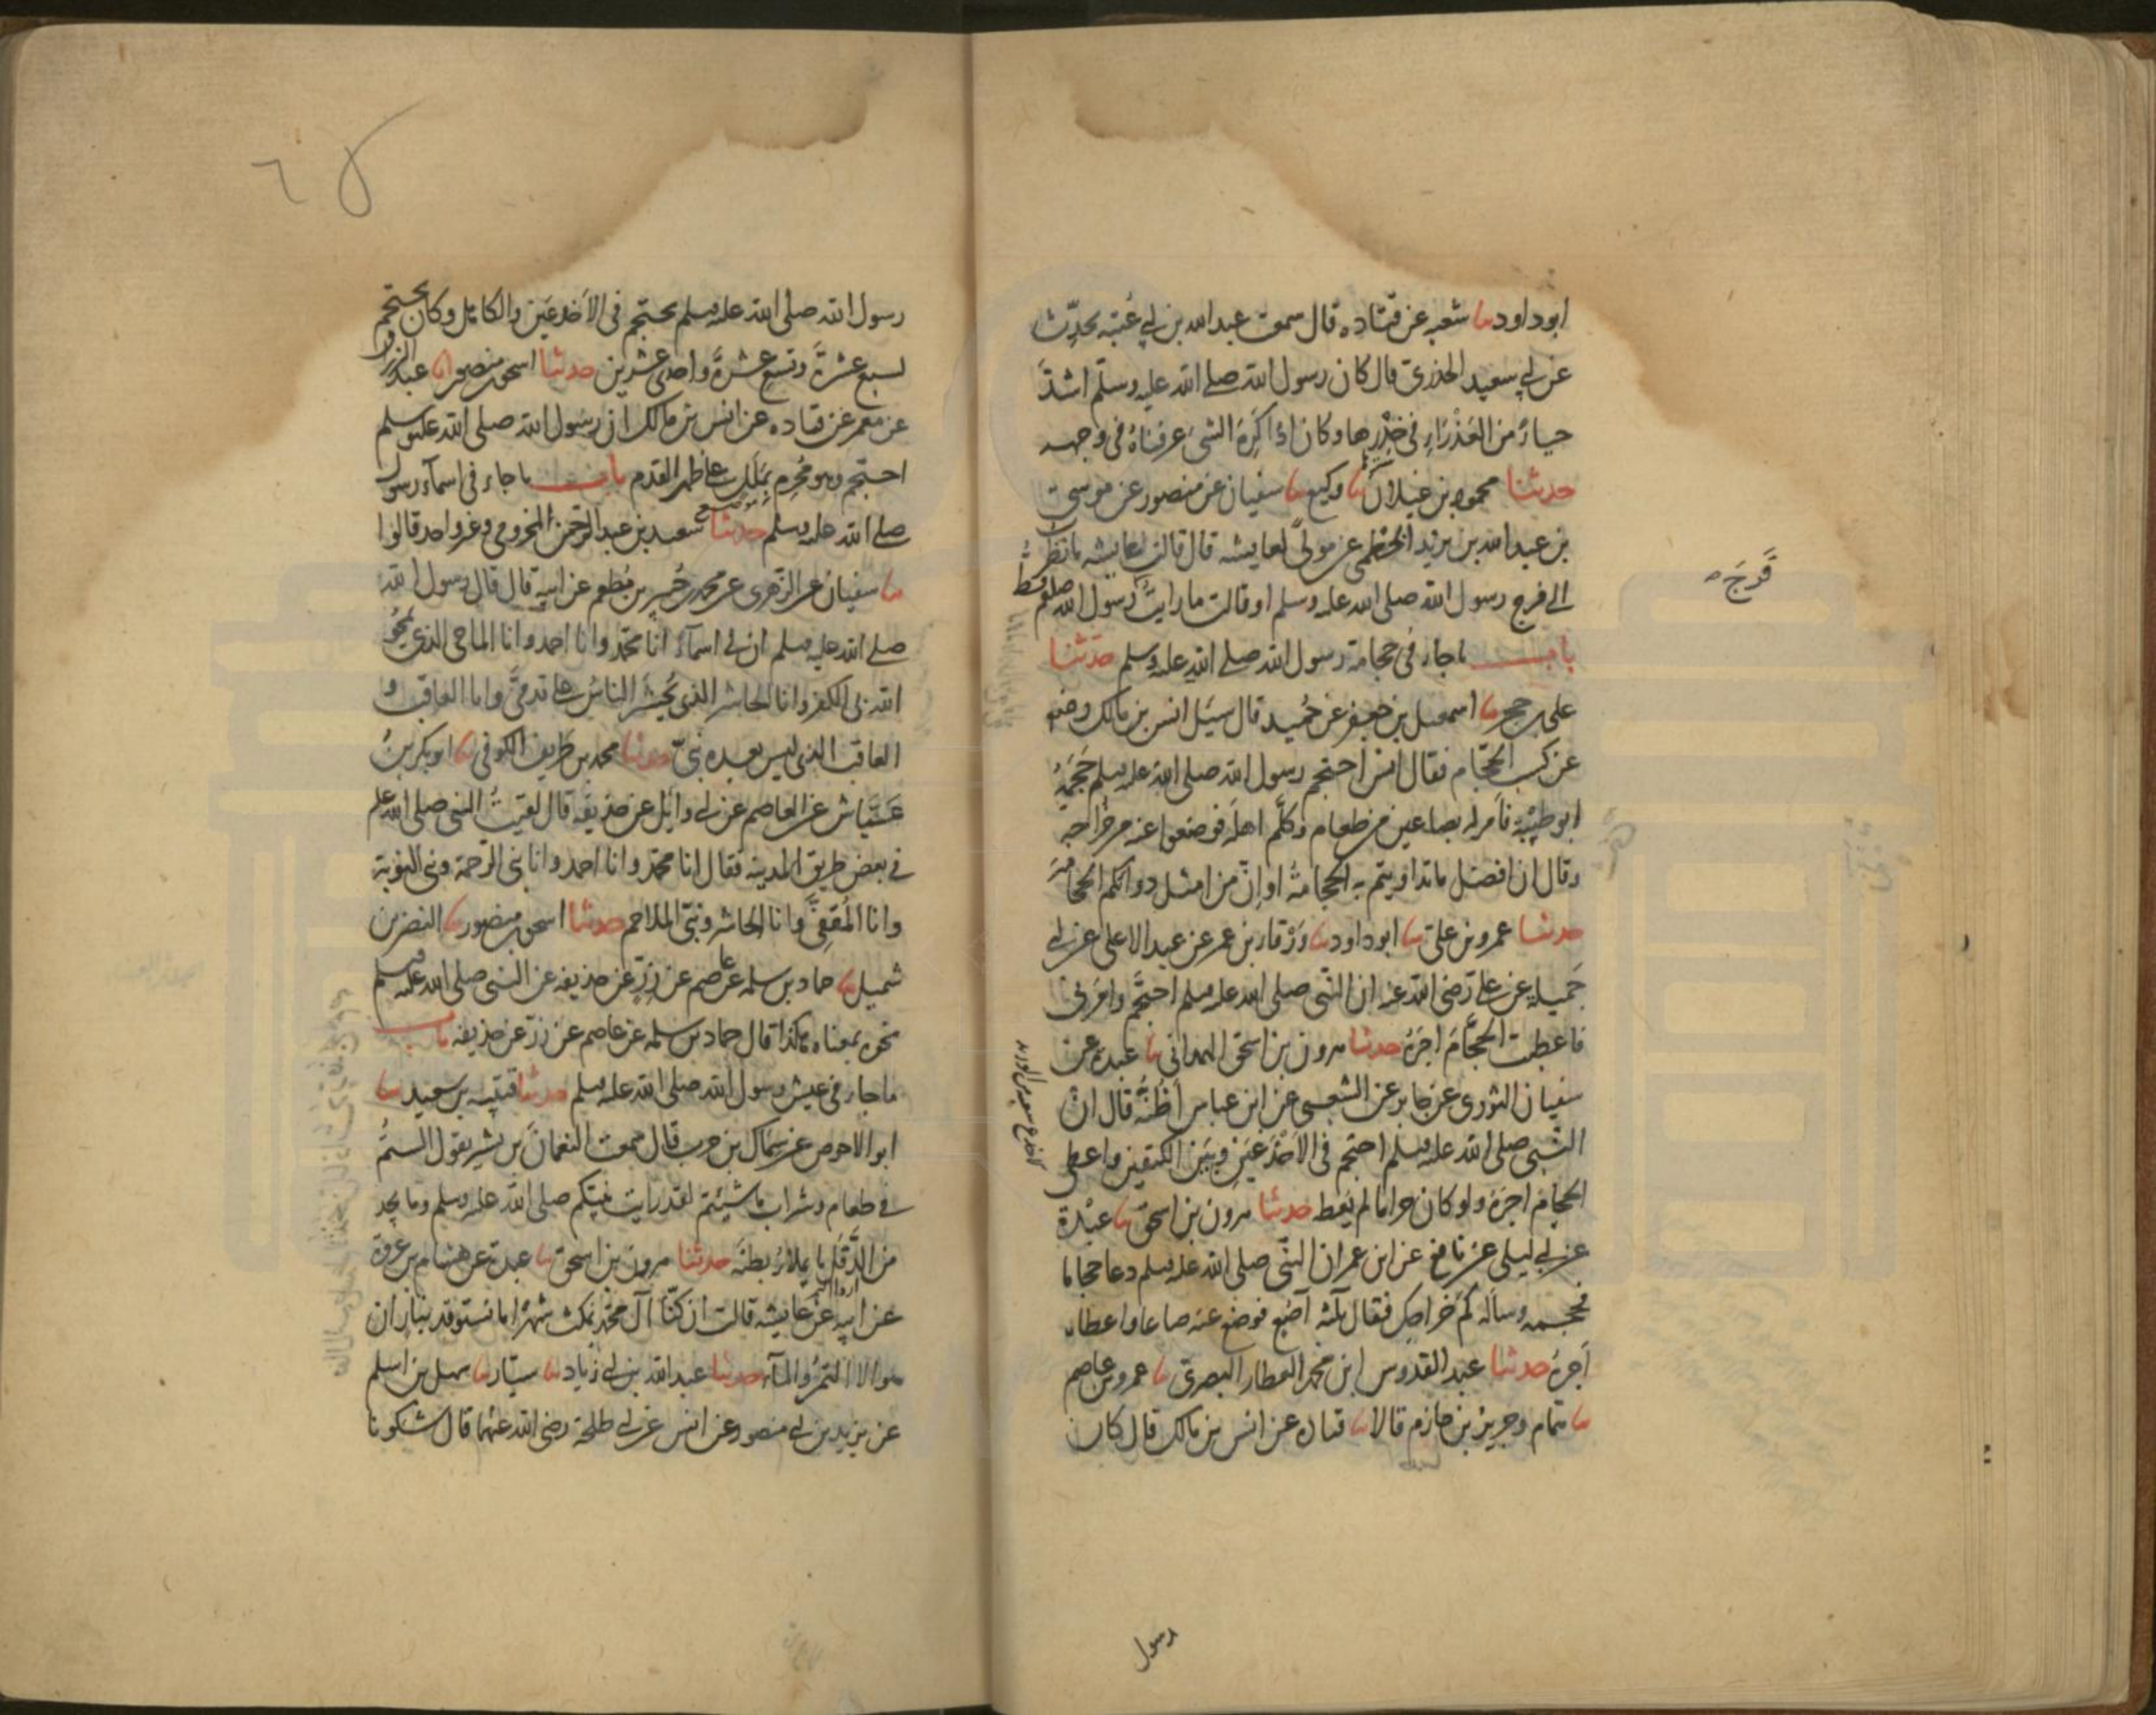 ابوداود ثنا شعبه عن قتاده قال سمعت عبدالله بن ابي عُتبه يحدِّث
عن ابي سعيد الخدري قال كان رسول الله صلى الله عليه وسلم اشدَّ
حياءً من العَذْرَاءِ في خِدْرِها وكان اذا كَرِهَ الشئ عرفناهُ في وجهه
حدثنا محمود بن غيلان ثنا وكيع ثنا سفيان عن منصور عن موسى
بن عبدالله بن يزيد الخَطْمي عن مولىً لعايشه قال قالت عايشه ما نظرتُ
الى فرج رسول الله صلى الله عليه وسلم او قالت ما رايتُ رسول الله صلعم قط
فَرجَ
باب ما جاء في حجامة رسول الله صلى الله عليه وسلم حدثنا
على بن حجر ثنا اسمعيل بن جعفر عن حُميد قال سيَل انس بن مالك رضه
عن كسب الحَجَّام فقال انس احتجم رسول الله صلى الله عليه وسلم حَجَمَهُ
ابو طَيْبَه فامَر له بصاعين من طعام وكلَّم اهلَه فوضعوا عنه من خراجه
وقال ان افضل ما تداويتم به الحجامةُ او اِنَّ من امثل دوائكم الحجامة
حدثنا عمرو بن على ثنا ابو داود ثنا وَرْقاء بن عمر عن عبد الاعلى عن ابي
جَميله عن على رضي الله عنه ان النَّبي صلى الله عليه وسلم احتجَم وامرني
فاعطيت الحجَّامَ اجرَهُ حدثنا هرون بن اسحق الهمداني ثنا عبده عن
سفيان الثوري عن جابر عن الشعبي عن ابن عباس اَظُنُّهُ قال انَّ
النَّبي صلى الله عليه وسلم احتجم في الاَخْدَعَيْنِ وبَيْنَ الكتفين واعطى
الحجام اجرَهُ ولو كان حراما لم يُعْطه حدثنا هرون بن اسحق ثنا عَبْدة
عن ابي ليلى عن نافع عن ابن عمر ان النَّبي صلى الله عليه وسلم دعا حجاما
فحجمه وساله كَم خراجك فقال ثلثه آصُع فوضع عنه صاعا واعطاه
اَجرَهُ حدثنا عبد القدوس ابن محمد العطار البصرى ثنا عمرو بن عاصم
ثنا همام وجرير بن حازم قالا ثنا قتاده عن انس بن مالك قال كان
رسول
رسول الله صلى الله عليه وسلم يحتجم في الاَخدعَين والكاهل وكان يحتجم
لسبع عشرةَ وتسع عشرةَ واحدى عشرين حدثنا اسحق بن منصور انا عبد الرزاق
عن معمر عن قتاده عن انس بن مالك ان رسول الله صلى الله عليه وسلم
احتجم وهو مُحْرِم بمَلَل على ظهر القدم باب ما جاء في اسمآء رسول
موضع
صلى الله عليه وسلم حدثنا سعيد بن عبد الرحمن المخزومي وغير واحد قالوا
ثنا سفيان عن الزهرى عن محمد بن جُبير بن مُطعم عن ابيه قال قال رسول الله
صلى الله عليه وسلم ان لي اسمآءً انا محمَّد وانا احمد وانا الماحى الذى يَمحُو
الله بى الكفر وانا الحاشر الذى يُحشَر الناسُ على قدميَّ وانا العاقب و
العاقب الذى ليس بعده نبيّ حدثنا محمد بن طَريف الكوفى ثنا ابو بكر بنُ
عَيَّاش عن العاصم عن ابي وايَل عن حذيفه قال لقيتُ النبى صلى الله علم
في بعض طريق المدينه فقال انا محمَّد وانا احمد وانا نبى الرَّحمة ونبى التوبة
وانا المُقَفّىِ وانا الحاشر ونبيّ الملاحم حدثنا اسحق بن منصور ثنا النضر بن
شميل ثنا حماد بن سلمه عن عاصم عن زِرٍّ عن حذيفه عن النبى صلى الله عليه وسلم
نحوه بمعناه هكذا قال حماد بن سلمه عن عاصم عن زرّ عن حذيفه باب
ما جاء في عيش رسول الله صلى الله عليه وسلم حدثنا قتيبه بن سعيد ثنا
ابو الاحوص عن سِمَاك بن حرب قال سمعت النعمانَ بن بشير يقول الستُم
في طعام وشراب ما شيئتم لقد رايت نبيَّكم صلى الله عليه وسلم وما يجد
من الدَّقَل ما يملاءُ بطنَه حدثنا هرون بن اسحق ثنا عبدة عن هشام بن عروة
عن ابيه عن عائيشه قالت ان كُنَّا آلَ محمَّد نمكث شهرًا ما نستوقد بنارٍ ان
هو الا التمرُ والمآء حدثنا عبد الله بن ابي زياد ثنا سيّار ثنا سهل بن اسلم
عن يزيد بن ابي منصور عن انس عن ابي طلحة رضى الله عنهما قال شكونا